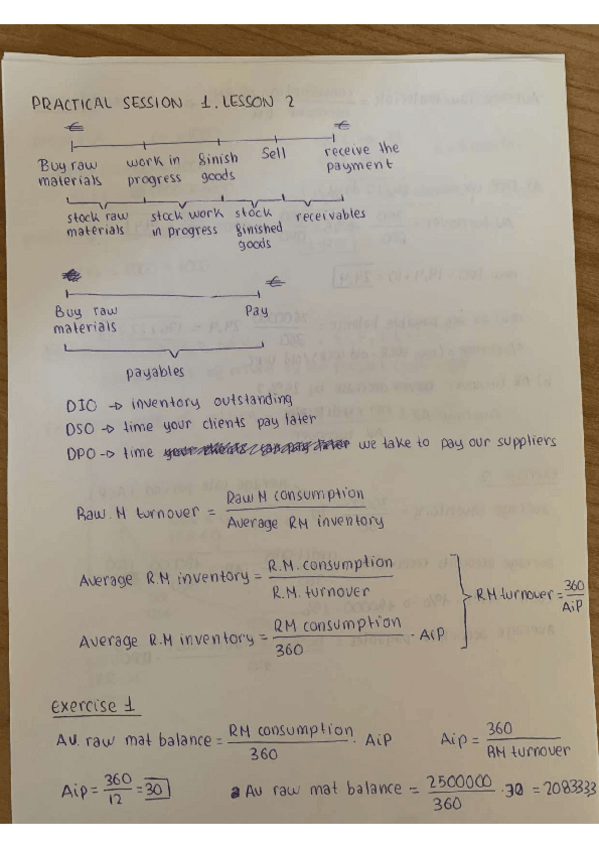 PRACTICAL SESSION 1. LESSON 2
€ €
Buy raw materials work in progress finish goods Sell receive the payment
stock raw materials stock work in progress stock finished goods receivables
€
Buy raw materials Pay
payables
DIO → inventory outstanding
DSO → time your clients pay later
DPO → time we take to pay our suppliers
Raw. M turnover = Raw M consumption / Average RM inventory
Average R.M inventory = R.M. consumption / R.M. turnover
RM turnover = 360 / AiP
Average R.M inventory = RM consumption / 360 · AiP
exercise 1
Av. raw mat balance = RM consumption / 360 · AiP AiP = 360 / RM turnover
AiP = 360 / 12 = 30 Av raw mat balance = 2500000 / 360 · 30 = 2083333